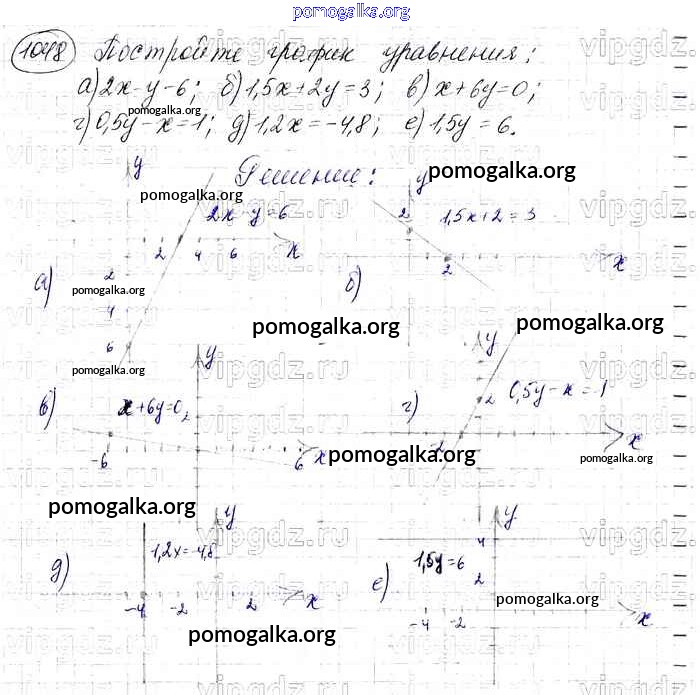 pomogalka.org
1048 Постройте график уравнения:
а) 2x-y-6; б) 1,5x+2y=3; в) x+6y=0;
pomogalka.org
г) 0,5y-x=1; д) 1,2x=-4,8; е) 1,5y=6.
vipgdz.ru
Решение:
pomogalka.org
pomogalka.org
y
2x y=6
2 4 6 x
2
4
6
а)
pomogalka.org
y
2
1,5x+2=3
2
x
б)
pomogalka.org
pomogalka.org
pomogalka.org
в)
y
x+6y=0
-6
6 x
г)
y
0,5y-x=1
2
-2
x
pomogalka.org
pomogalka.org
pomogalka.org
д)
y
1,2x=-4,8
-4 -2 2 x
е)
y
4
1,5y=6
2
-4 -2
x
pomogalka.org
pomogalka.org